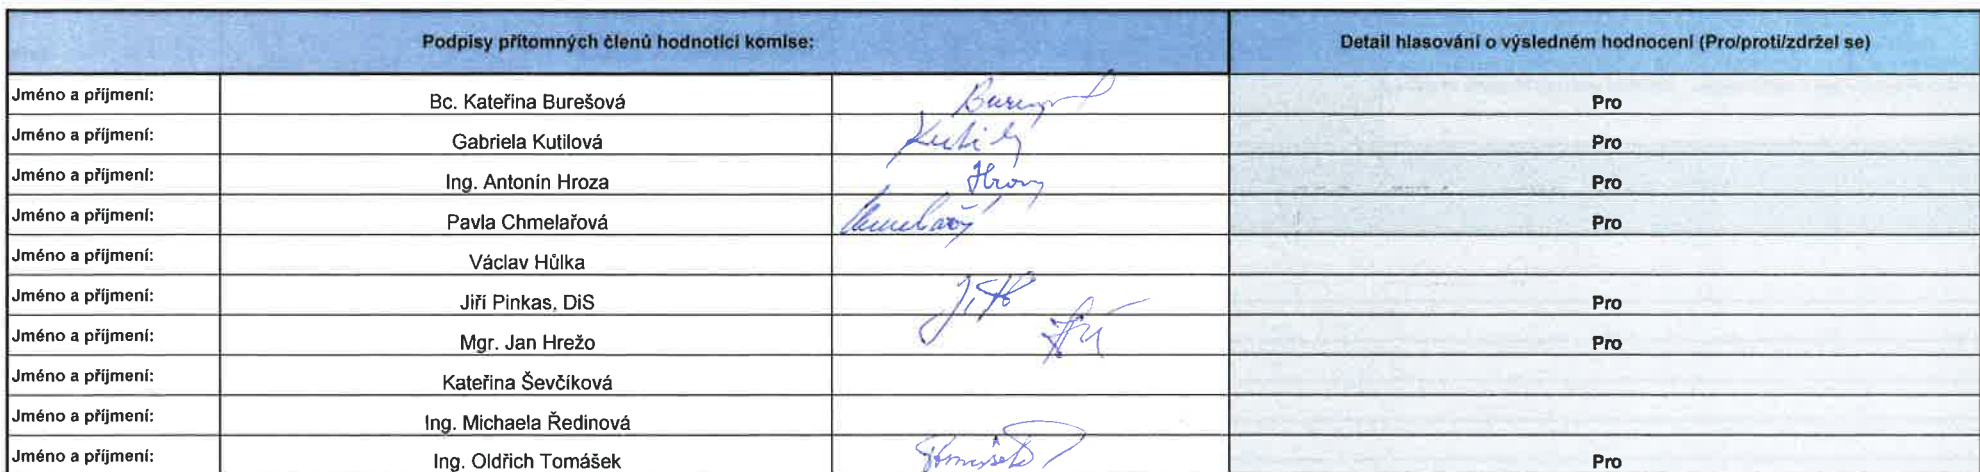 Podpisy přítomných členů hodnotící komise: Detail hlasování o výsledném hodnocení (Pro/proti/zdržel se)
Jméno a příjmení: Bc. Kateřina Burešová Pro
Jméno a příjmení: Gabriela Kutilová Pro
Jméno a příjmení: Ing. Antonín Hroza Pro
Jméno a příjmení: Pavla Chmelařová Pro
Jméno a příjmení: Václav Hůlka
Jméno a příjmení: Jiří Pinkas, DiS Pro
Jméno a příjmení: Mgr. Jan Hrežo Pro
Jméno a příjmení: Kateřina Ševčíková
Jméno a příjmení: Ing. Michaela Ředinová
Jméno a příjmení: Ing. Oldřich Tomášek Pro